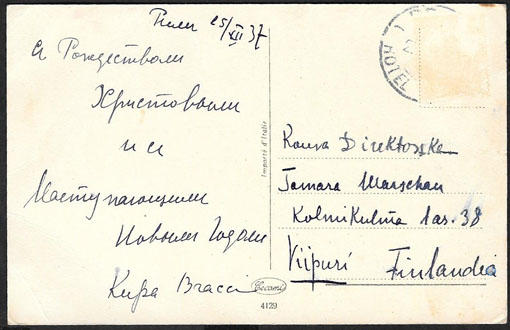 Рим 25/XII 37
с Рождеством
Христовым
и с
Наступающим
Новым Годом
Кира Bracci
Rouva Direktorska
Tamara Marschan
Kolmikulma 1as. 38
Viipuri Finlandia
Importé d'Italie
Cecami
4129
HOTEL